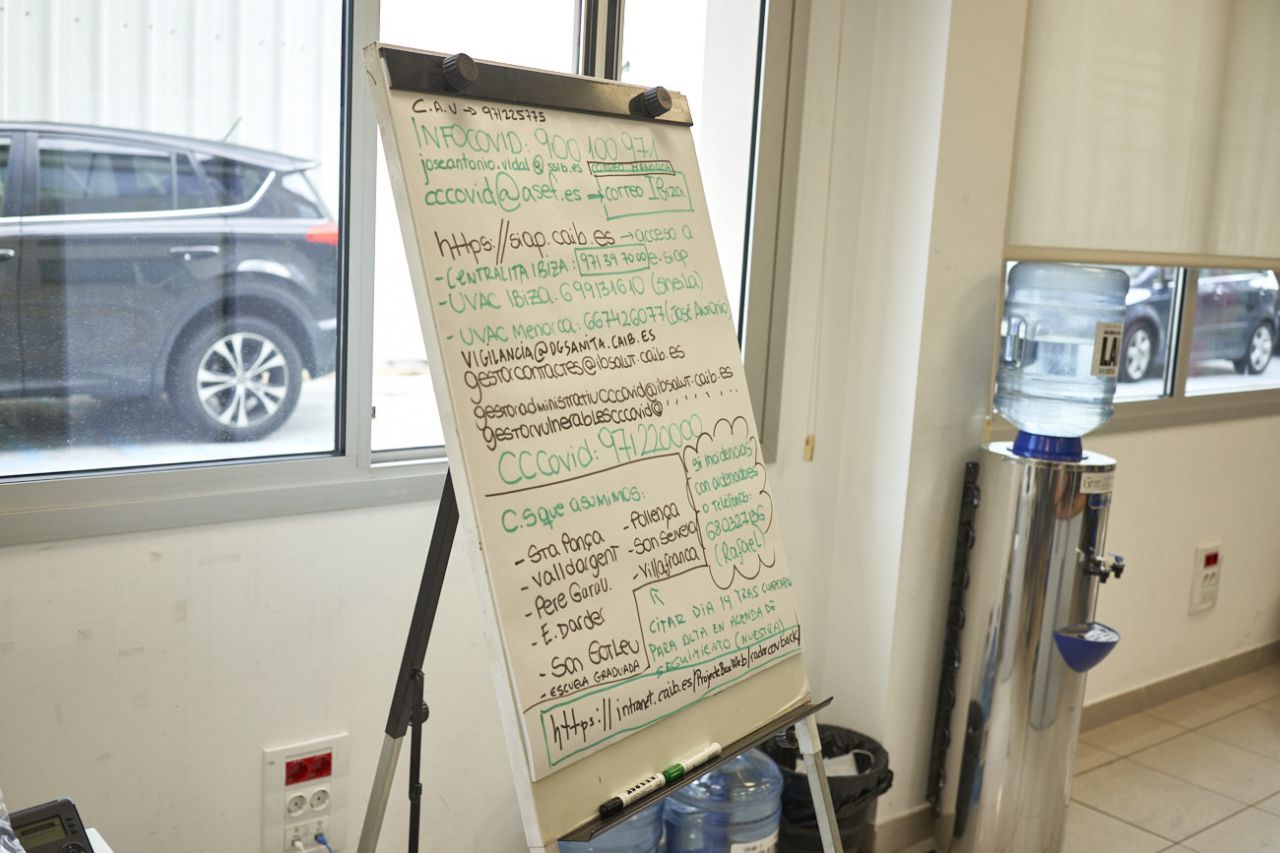 C.A.U → 971225775
INFOCOVID: 900 100 971
joseantonio.vidal@ssib.es CORREO MENORCA
cccovid@asef.es → CORREO IBIZA
https://siap.caib.es → acceso a
e-siap
- CENTRALITA IBIZA: 971 39 70 00
- UVAC IBIZA: 699131610 (Sheila)
- UVAC Menorca: 667426077 (José Antonio)
VIGILANCIA@DGSANITA.CAIB.ES
gestorcontactes@ibsalut.caib.es
gestoradministratiucccovid@ibsalut.caib.es
gestorvulnerablescccovid@
CCCovid: 971220000
si incidencias
con ordenadores
o teléfonos:
(Rafael)
C.S que asumimos:
- Sta Ponça
- Valldargent
- Pere Garau
- E. Darder
- Son
- ESCUELA GRADUADA
- Pollença
- Son Servera
- Villafranca
CITAR DIA 14 TRAS
PARA ALTA EN AGENDA DE
SEGUIMIENTO (NUESTRA)
https://intranet.caib.es/
LA